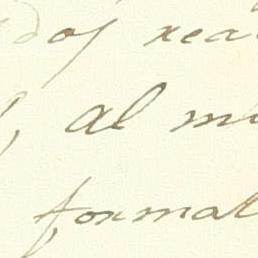 dos rea
al mi
formal